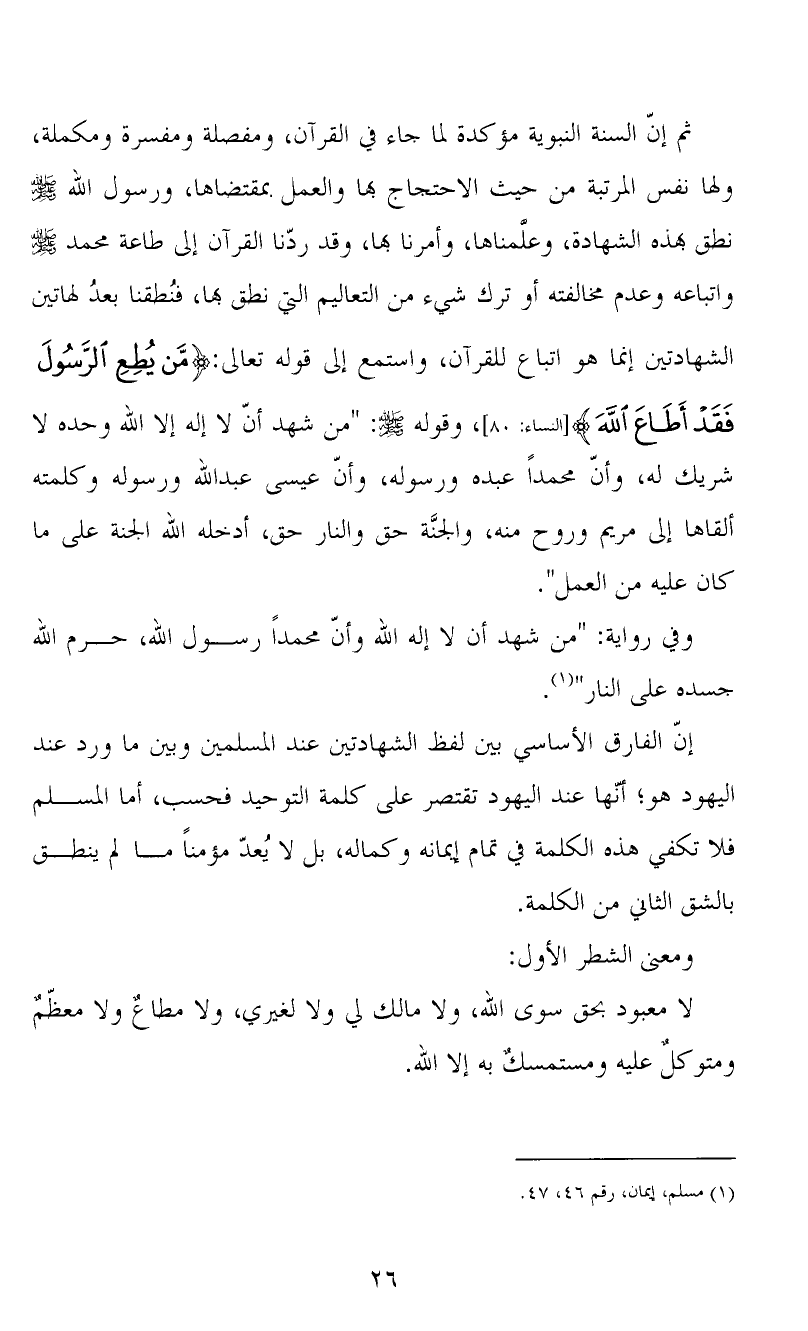 ثم إنّ السنة النبوية مؤكدة لما جاء في القرآن، ومفصلة ومفسرة ومكملة،
ولها نفس المرتبة من حيث الاحتجاج بها والعمل بمقتضاها، ورسول الله ﷺ
نطق بهذه الشهادة، وعلَّمناها، وأمرنا بها، وقد ردّنا القرآن إلى طاعة محمد ﷺ
واتباعه وعدم مخالفته أو ترك شيء من التعاليم التي نطق بها، فنُطقنا بعدُ لهاتين
الشهادتين إنما هو اتباع للقرآن، واستمع إلى قوله تعالى:﴿مَّن يُطِعِ ٱلرَّسُولَ
فَقَدْ أَطَاعَ ٱللَّهَ﴾[النساء: ٨٠]، وقوله ﷺ: "من شهد أنّ لا إله إلا الله وحده لا
شريك له، وأنّ محمداً عبده ورسوله، وأنّ عيسى عبدالله ورسوله وكلمته
ألقاها إلى مريم وروح منه، والجنَّة حق والنار حق، أدخله الله الجنة على ما
كان عليه من العمل".
وفي رواية: "من شهد أن لا إله الله وأنّ محمداً رســـول الله، حـــرم الله
جسده على النار"(١).
إنّ الفارق الأساسي بين لفظ الشهادتين عند المسلمين وبين ما ورد عند
اليهود هو؛ أنّها عند اليهود تقتصر على كلمة التوحيد فحسب، أما المســـلم
فلا تكفي هذه الكلمة في تمام إيمانه وكماله، بل لا يُعدّ مؤمناً مـــا لم ينطـــق
بالشق الثاني من الكلمة.
ومعنى الشطر الأول:
لا معبود بحق سوى الله، ولا مالك لي ولا لغيري، ولا مطاعٌ ولا معظّمٌ
ومتوكلٌ عليه ومستمسكٌ به إلا الله.
(١) مسلم، إيمان، رقم ٤٦، ٤٧.
٢٦